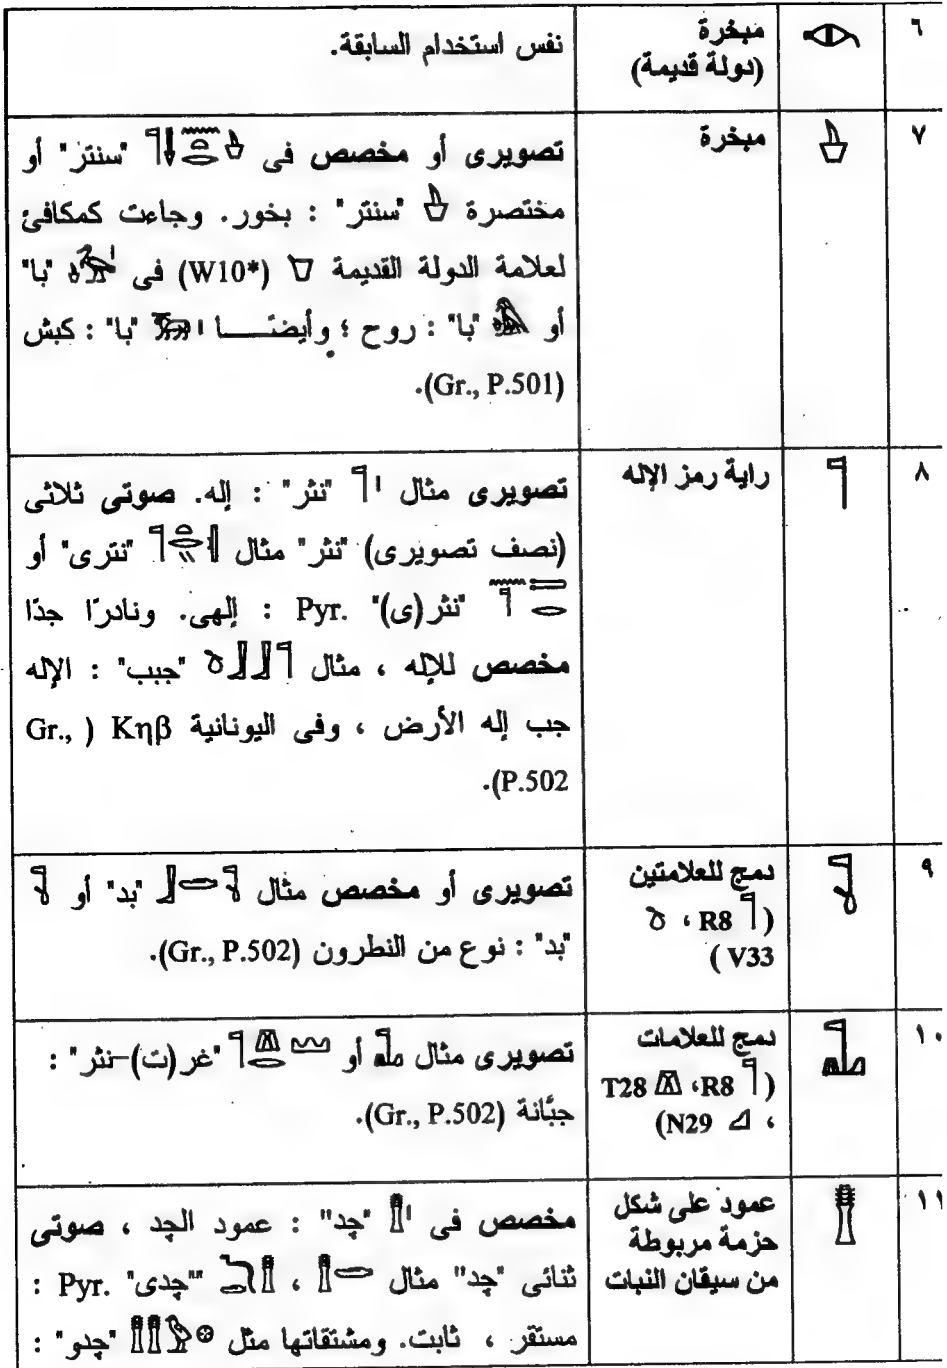 ٦
مبخرة
(دولة قديمة)
نفس استخدام السابقة.
٧
مبخرة
تصويرى أو مخصص فى "سنتر" أو
مختصرة "سنتر" : بخور. وجاءت كمكافئ
لعلامة الدولة القديمة (W10*) فى "با"
أو "با" : روح ؛ وأيضـًـا "با" : كبش
(Gr., P.501).
٨
راية رمز الإله
تصويرى مثال "نثر" : إله. صوتى ثلاثى
(نصف تصويرى) "نثر" مثال "نترى" أو
"نثر(ى)" Pyr. : إلهى. ونادرًا جدًا
مخصص للإله ، مثال "جبب" : الإله
جب إله الأرض ، وفى اليونانية Κηβ ( Gr.,
P.502).
٩
دمج للعلامتين
( R8 ،
V33 )
تصويرى أو مخصص مثال "بد" أو
"بد" : نوع من النطرون (Gr., P.502).
١٠
دمج للعلامات
( R8، T28
، N29)
تصويرى مثال أو "غر(ت)-نثر" :
جبَّانة (Gr., P.502).
١١
عمود على شكل
حزمة مربوطة
من سيقان النبات
مخصص فى "چد" : عمود الچد ، صوتى
ثنائى "چد" مثال ، "چدى" Pyr. :
مستقر ، ثابت. ومشتقاتها مثل "چدو" :